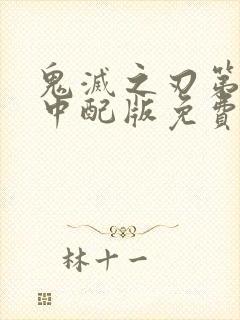 鬼滅之刃第
中配版免費
林十一